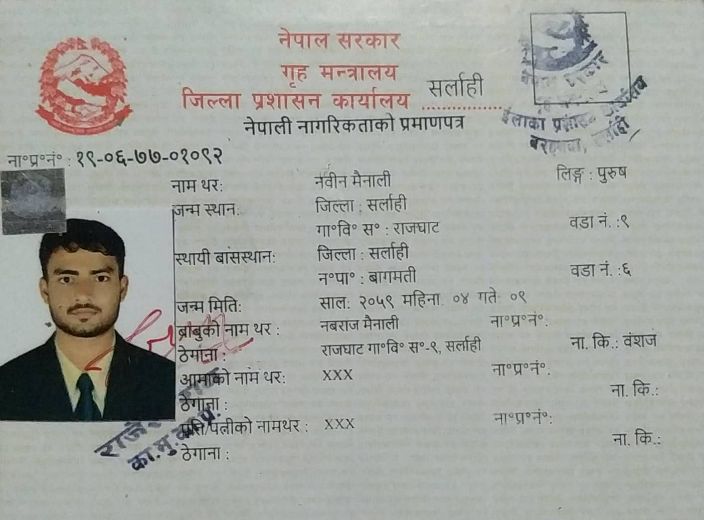 नेपाल सरकार
गृह मन्त्रालय
जिल्ला प्रशासन कार्यालय सर्लाही
नेपाली नागरिकताको प्रमाणपत्र
इलाका प्रशासन
सर्लाही
ना॰प्र॰नं॰ : १९-०६-७७-०१०९२
नाम थर: नवीन मैनाली लिङ्ग : पुरुष
जन्म स्थान: जिल्ला : सर्लाही
गा॰वि॰ स॰ : राजघाट वडा नं. :९
स्थायी बासस्थान: जिल्ला : सर्लाही
न॰पा॰ : बागमती वडा नं. :६
जन्म मिति: साल: २०५९ महिना. ०४ गते ०९
बाबुको नाम थर : नबराज मैनाली ना॰प्र॰नं॰:
ठेगाना: राजघाट गा॰वि॰ स॰-९, सर्लाही ना. कि.: वंशज
आमाको नाम थर: XXX ना॰प्र॰नं॰:
ठेगाना : ना. कि.:
पति/पत्नीको नामथर : XXX ना॰प्र॰नं॰:
ठेगाना : ना. कि.: